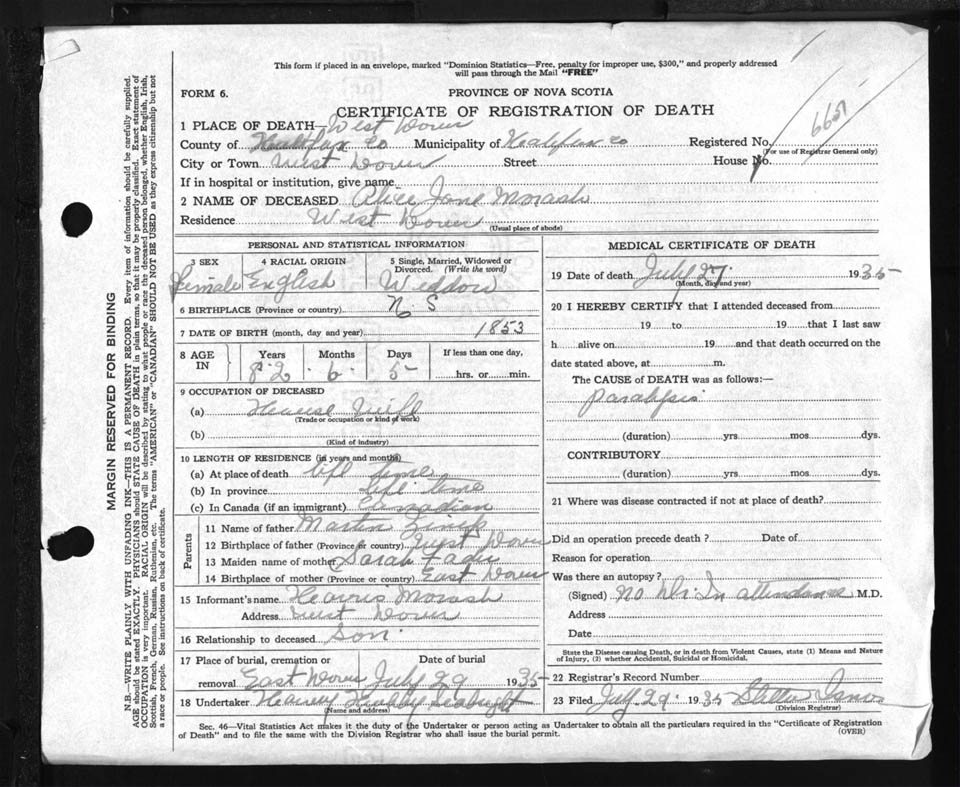 This form if placed in an envelope, marked "Dominion Statistics—Free, penalty for improper use, $300," and properly addressed
will pass through the Mail "FREE"
FORM 6.
PROVINCE OF NOVA SCOTIA
CERTIFICATE OF REGISTRATION OF DEATH
1 PLACE OF DEATH— West Dover
County of Halifax Co Municipality of Halifax Co Registered No.
(For use of Registrar General only)
City or Town West Dover Street House No.
If in hospital or institution, give name
2 NAME OF DECEASED Alice Jane Morash
Residence West Dover
(Usual place of abode)
PERSONAL AND STATISTICAL INFORMATION
3 SEX 4 RACIAL ORIGIN 5 Single, Married, Widowed or Divorced. (Write the word)
Female English Widdow
6 BIRTHPLACE (Province or country) N S
7 DATE OF BIRTH (month, day and year) 1853
8 AGE IN Years Months Days If less than one day,
82 6 5 hrs. or min.
9 OCCUPATION OF DECEASED
(a) House Wife
(Trade or occupation or kind of work)
(b)
(Kind of industry)
10 LENGTH OF RESIDENCE (in years and months)
(a) At place of death time
(b) In province time
(c) In Canada (if an immigrant) Canadian
Parents
11 Name of father Martin
12 Birthplace of father (Province or country) West Dover
13 Maiden name of mother Sarah
14 Birthplace of mother (Province or country) East Dover
15 Informant's name Morash
Address West Dover
16 Relationship to deceased Son
17 Place of burial, cremation or removal Date of burial
East Dover July 29 1935
18 Undertaker
(Name and address)
MEDICAL CERTIFICATE OF DEATH
19 Date of death July 27 1935
(Month, day and year)
20 I HEREBY CERTIFY that I attended deceased from
19 to 19 that I last saw
h alive on 19 and that death occurred on the
date stated above, at m.
The CAUSE of DEATH was as follows:—
Paralysis
(duration) yrs. mos. dys.
CONTRIBUTORY
(duration) yrs. mos. dys.
21 Where was disease contracted if not at place of death?
Did an operation precede death ? Date of
Reason for operation
Was there an autopsy?
(Signed) No Dr. In attendance M.D.
Address
Date
State the Disease causing Death, or in death from Violent Causes, state (1) Means and Nature
of Injury, (2) whether Accidental, Suicidal or Homicidal.
22 Registrar's Record Number
23 Filed July 29 1935
(Division Registrar)
Sec. 46—Vital Statistics Act makes it the duty of the Undertaker or person acting as Undertaker to obtain all the particulars required in the "Certificate of Registration
of Death" and to file the same with the Division Registrar who shall issue the burial permit.
(OVER)
MARGIN RESERVED FOR BINDING
N.B.—WRITE PLAINLY WITH UNFADING INK—THIS IS A PERMANENT RECORD. Every item of information should be carefully supplied.
AGE should be stated EXACTLY. PHYSICIANS should STATE CAUSE OF DEATH in plain terms, so that it may be properly classified. Exact statement of
OCCUPATION is very important. RACIAL ORIGIN will be described by stating to what people or race the deceased person belonged, whether English, Irish,
Scottish, French, German, Russian, Ruthenian, etc. The terms "AMERICAN" or "CANADIAN" SHOULD NOT BE USED as they express citizenship but not
a race or people. See instructions on back of certificate.